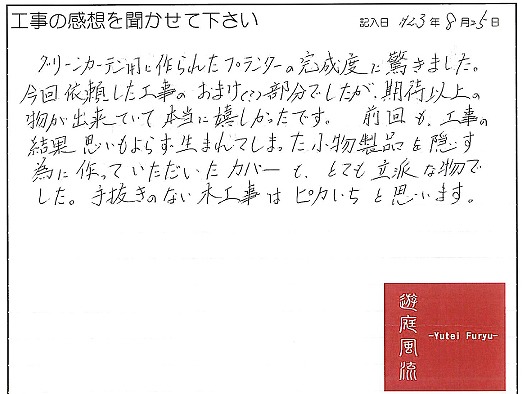 工事の感想を聞かせて下さい
記入日 H23年8月25日
グリーンカーテン用に作られたプランターの完成度に驚きました。
今回依頼した工事のおまけ(?)部分でしたが、期待以上の
物が出来ていて本当に嬉しかったです。 前回も、工事の
結果思いもよらず生まれてしまった小物製品を隠す
為に作っていただいたカバーも、とても立派な物で
した。手抜きのない木工事はピカいちと思います。
遊庭風流
-Yutei Furyu-